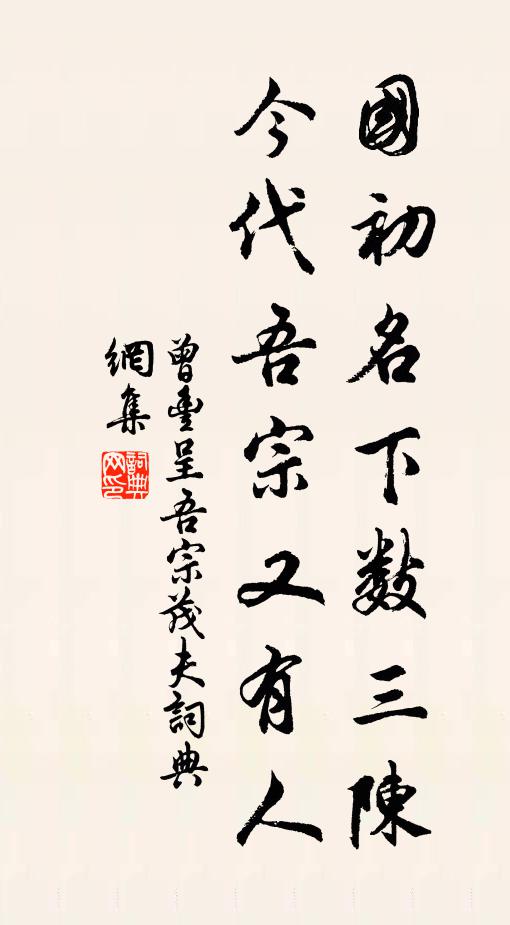 國初名下数三陳
今代吾宗又有人
曾豐呈吾宗茂夫詞典
網集
詞典
网印